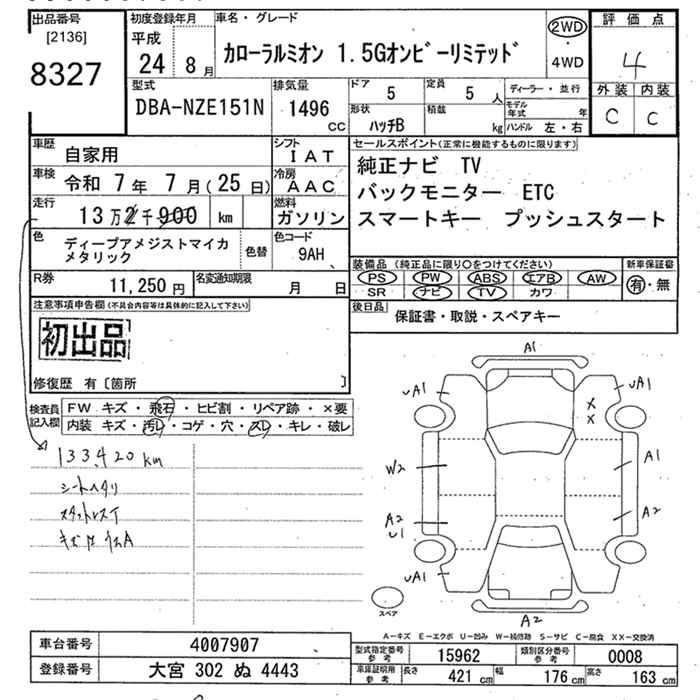 出品番号
[2136]
8327
初度登録年月
平成
24 8月
車名・グレード
カローラルミオン 1.5Gオンビーリミテッド
2WD
・
4WD
評価点
4
外装 内装
C C
型式
DBA-NZE151N
排気量
1496
CC
ドア
5
定員
5人
形状
ハッチB
積載
kg
ディーラー・並行
モデル年式 年
ハンドル 左・右
車歴
自家用
シフト
IAT
車検
令和 7年 7月(25日)
冷房
AAC
走行
13万2千900 km
燃料
ガソリン
色
ディープアメジストマイカ
メタリック
色替
色コード
9AH
R券
11,250円
名変通知期限
月 日
セールスポイント(正常に機能するものに限ります)
純正ナビ TV
バックモニター ETC
スマートキー プッシュスタート
装備品 (純正品に限り○をつけてください)
PS PW ABS エアB AW
SR ナビ TV カワ
新車保証書
有・無
後日品
保証書・取説・スペアキー
注意事項申告欄(不具合内容等は具体的に記入して下さい)
初出品
修復歴 有〔箇所 〕
検査員
記入欄
FW キズ・飛石・ヒビ割・リペア跡・×要
内装 キズ・汚レ・コゲ・穴・スレ・キレ・破レ
133,420km
シートヘタリ
スタットレスT
A1
uA1
uA1
×
×
W2
A1
A2
U1
A2
uA1
A2
スペア
A-キズ E-エクボ U-凹み W-補修跡 S-サビ C-腐食 XX-交換済
車台番号
4007907
登録番号
大宮 302 ぬ 4443
型式指定番号
参考
15962
類別区分番号
参考
0008
車庫証明用
参考
長さ 421cm
幅 176cm
高さ 163cm